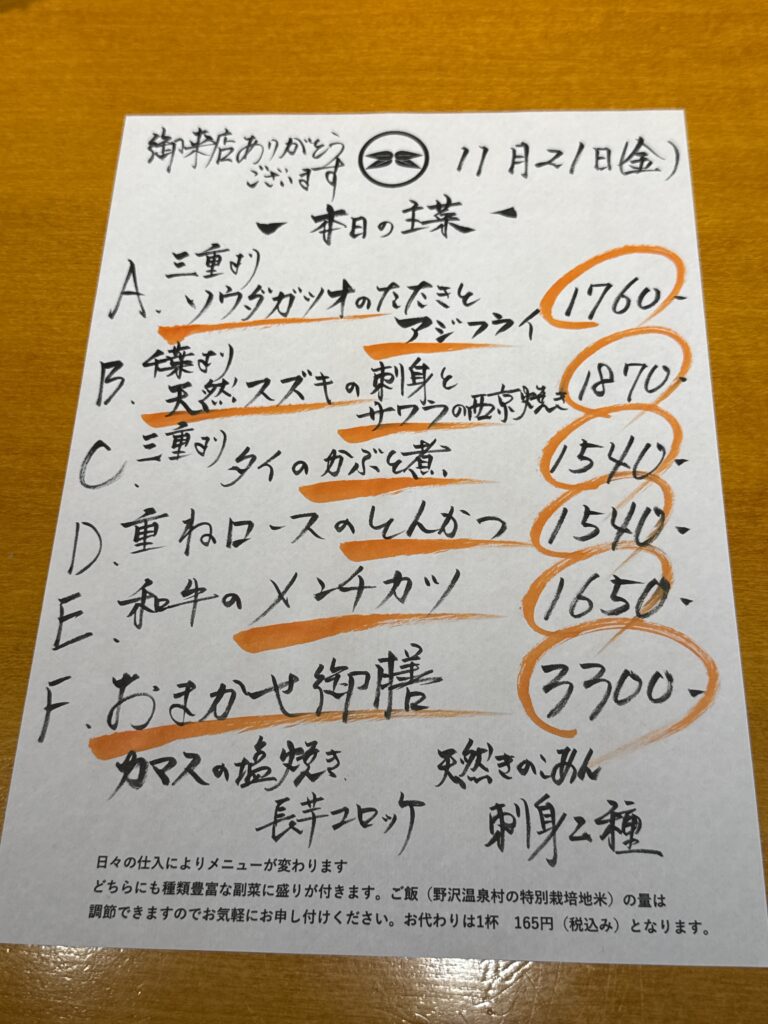 御来店ありがとう
ございます
11月21日(金)
本日の主菜
A. 三重より
ソウダガツオのたたきと
アジフライ 1760-
B. 千葉より
天然スズキの刺身と
サワラの西京焼き 1870-
C. 三重より タイのかぶと煮 1540-
D. 重ねロースのとんかつ 1540-
E. 和牛のメンチカツ 1650-
F. おまかせ御膳 3300-
カマスの塩焼き 天然きのこあん
長芋コロッケ 刺身2種
日々の仕入によりメニューが変わります
どちらにも種類豊富な副菜に盛りが付きます。ご飯（野沢温泉村の特別栽培地米）の量は
調節できますのでお気軽にお申し付けください。お代わりは1杯 165円（税込み）となります。